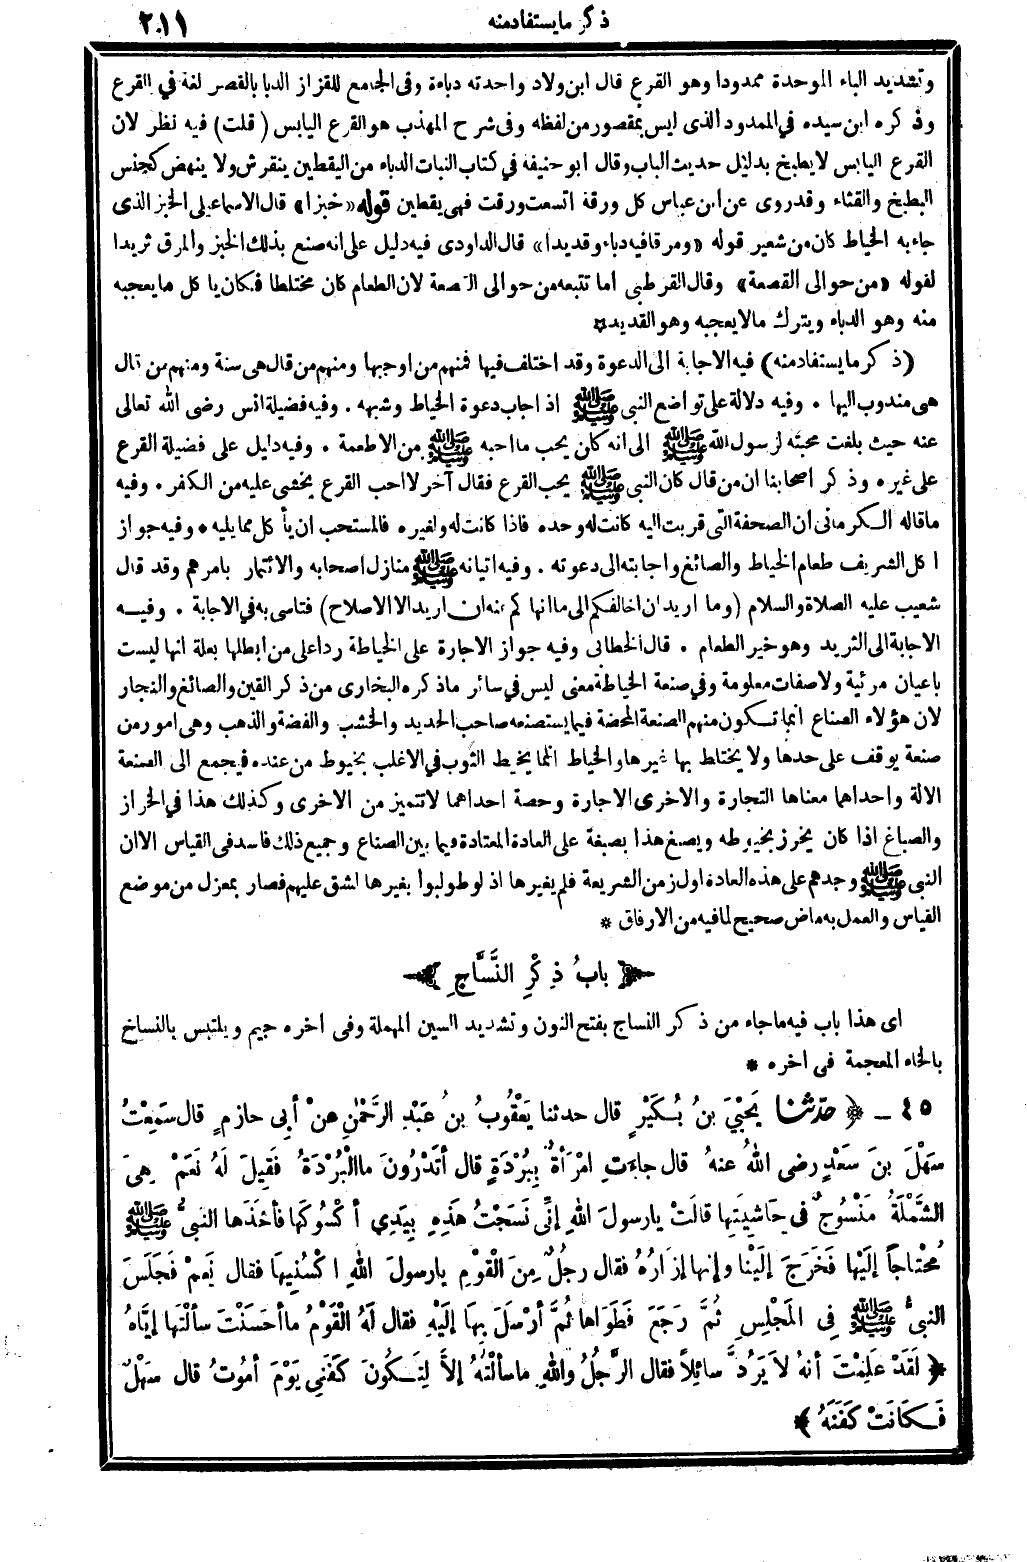 ذكر ما يستفاد منه ٢٠١١
وتشديد الباء الموحدة ممدودا وهو القرع قال ابن ولاد واحدته دباءة وفى الجامع للقزاز الدبا بالقصر لغة في القرع
وذكره ابن سيده في الممدود الذى ليس بمقصور من لفظه وفى شرح المهذب هو القرع اليابس (قلت) فيه نظر لان
القرع اليابس لا يطبخ بدليل حديث الباب وقال ابو حنيفة في كتاب النبات الدباء من اليقطين ينفرش ولا ينهض كجنس
البطيخ والقثاء وقد روى عن ابن عباس كل ورقة اتسعت ورقت فهى يقطين قوله «خبزا» قال الاسماعيلى الخبز الذى
جاء به الخياط كان من شعير قوله «ومرقا فيه دباء وقديدا» قال الداودى فيه دليل على انه صنع بذلك الخبز والمرق ثريدا
لقوله «من حوالى القصعة» وقال القرطبى اما تتبعه من حوالى القصعة لان الطعام كان مختلطا فكان يا كل ما يعجبه
منه وهو الدباء ويترك مالا يعجبه وهو القديد *
(ذكر ما يستفاد منه) فيه الاجابة الى الدعوة وقد اختلف فيها فمنهم من اوجبها ومنهم من قال هى سنة ومنهم من قال
هى مندوب اليها . وفيه دلالة على تواضع النبى ﷺ اذ اجاب دعوة الخياط وشبهه . وفيه فضيلة انس رضى الله تعالى
عنه حيث بلغت محبته لرسول الله ﷺ الى انه كان يحب ما احبه ﷺ من الاطعمة . وفيه دليل على فضيلة القرع
على غيره وذكر اصحابنا ان من قال كان النبى ﷺ يحب القرع فقال آخر لا احب القرع يخشى عليه من الكفر . وفيه
ما قاله الكرمانى ان الصحفة التى قربت اليه كانت له وحده فاذا كانت له ولغيره فالمستحب ان يأكل مما يليه * وفيه جواز
اكل الشريف طعام الخياط والصائغ واجابته الى دعوته . وفيه اتيانه ﷺ منازل اصحابه والائتمار بامرهم وقد قال
شعيب عليه الصلاة والسلام (وما اريد ان اخالفكم الى ما انهاكم عنه ان اريد الا الاصلاح) فتاسى به في الاجابة . وفيه
الاجابة الى الثريد وهو خير الطعام . قال الخطابى وفيه جواز الاجارة على الخياطة ردا على من ابطلها بعلة انها ليست
باعيان مرئية ولا صفات معلومة وفي صنعة الخياطة معنى ليس في سائر ما ذكره البخارى من ذكر القين والصائغ والنجار
لان هؤلاء الصناع انما تكون منهم الصنعة المحضة فيما يستصنعه صاحب الحديد والخشب والفضة والذهب وهى امور من
صنعة يوقف على حدها ولا يختلط بها غيرها والخياط انما يخيط الثوب في الاغلب بخيوط من عنده فيجمع الى الصنعة
الالة واحداهما معناها التجارة والاخرى الاجارة وحصة احداهما لا تتميز من الاخرى وكذلك هذا في الخراز
والصباغ اذا كان يخرز بخيوطه ويصبغ هذا بصبغة على العادة المعتادة فيما بين الصناع وجميع ذلك فاسد فى القياس الا ان
النبى ﷺ وجدهم على هذه العادة اول زمن الشريعة فلم يغيرها اذ لو طولبوا بغيرها لشق عليهم فصار بمعزل من موضع
القياس والعمل به ماض صحيح لما فيه من الارفاق *
﴿ بابُ ذِكْرِ النَّسَّاجِ ﴾
اى هذا باب فيه ما جاء من ذكر النساج بفتح النون وتشديد السين المهملة وفى اخره جيم ويلتبس بالنساخ
بالخاء المعجمة فى اخره *
٤٥ ـ ﴿ حدّثنا يَحْيَى بنُ بُكَيْرٍ قال حدثنا يَعْقُوبُ بنُ عَبْدِ الرَّحْمٰنِ عنْ أبِى حازِمٍ قال سَمِعْتُ
سَهْلَ بنَ سَعْدٍ رضى اللهُ عنهُ قال جاءَتِ امْرَأةٌ بِبُرْدَةٍ قال أتَدْرُونَ ما البُرْدَةُ فَقِيلَ لَهُ نَعَمْ هِىَ
الشَّمْلَةُ مَنْسُوجٌ في حاشِيَتِها قالَتْ يا رسولَ اللهِ إنِّى نَسَجْتُ هَذِهِ بِيَدِي أكْسُوكَها فأخَذَها النبىُّ ﷺ
مُحْتاجاً إلَيْها فَخَرَجَ إلَيْنا وإنها إزَارُهُ فقال رجُلٌ مِنَ القَوْمِ يا رسولَ اللهِ اكْسُنِيها فقال نَعَمْ فَجَلَسَ
النبىُّ ﷺ فِى المَجْلِسِ ثُمَّ رَجَعَ فَطَوَاها ثُمَّ أرْسَلَ بِهَا إلَيْهِ فقال لَهُ القَوْمُ ما أحسَنْتَ سألْتَها إيَّاهُ
لَقَدْ عَلِمْتَ أنهُ لاَ يَرُدُّ سائِلاً فقال الرَّجُلُ واللهِ ما سألْتُهُ إلاَّ لِتَكُونَ كَفَنِي يَوْمَ أمُوتُ قال سَهْلٌ
فَكَانَتْ كَفَنَهُ ﴾